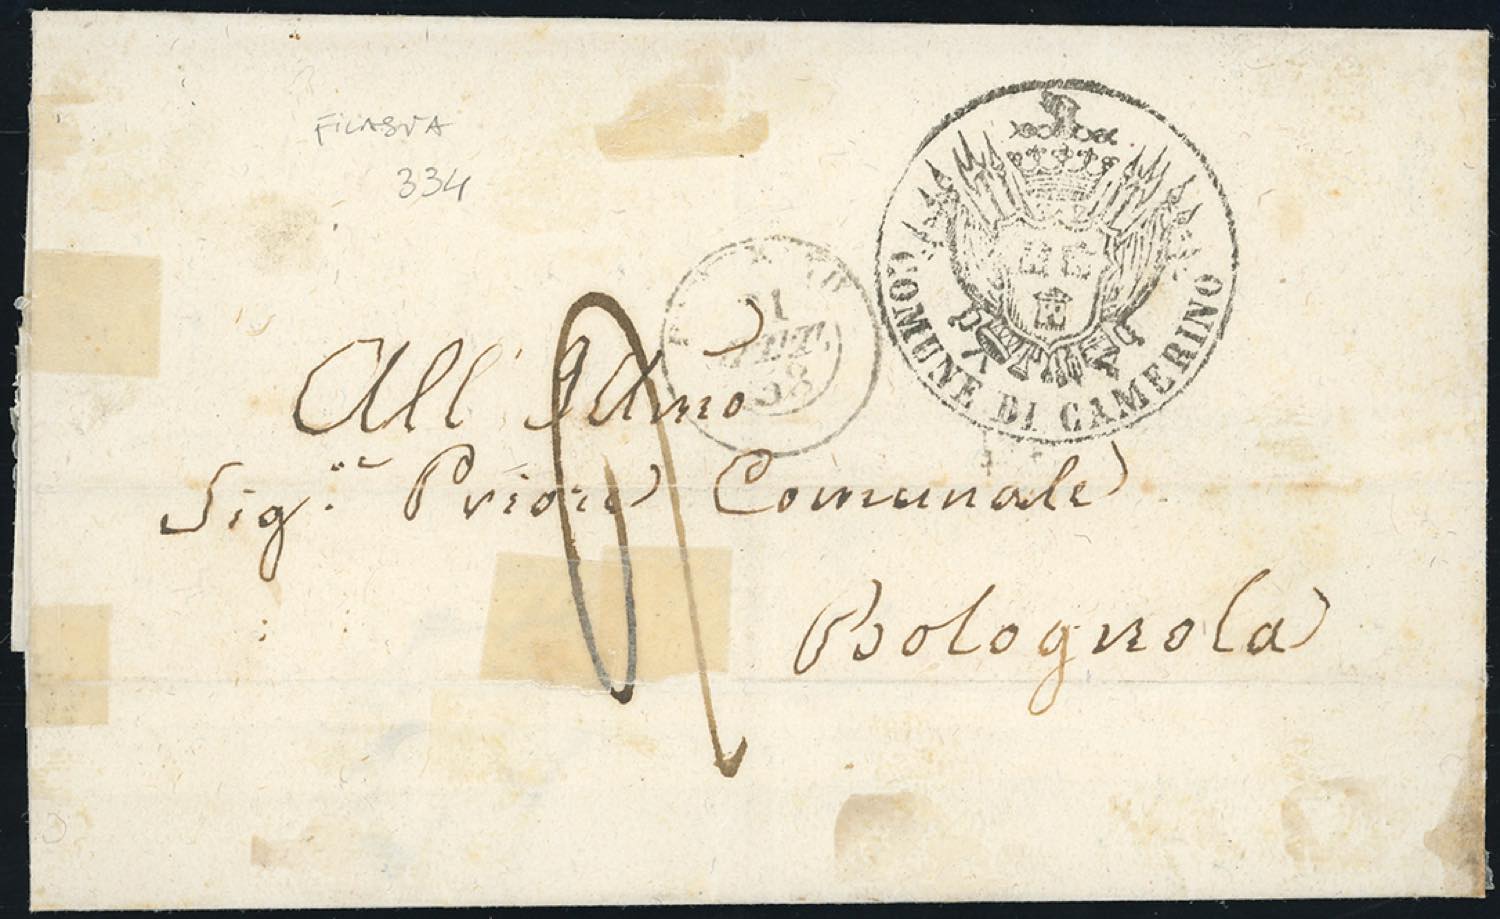 FILASTA
334
COMUNE DI CAMERINO
21
SET.
58
All' Illmo
Sig.re Priore Comunale
Bolognola